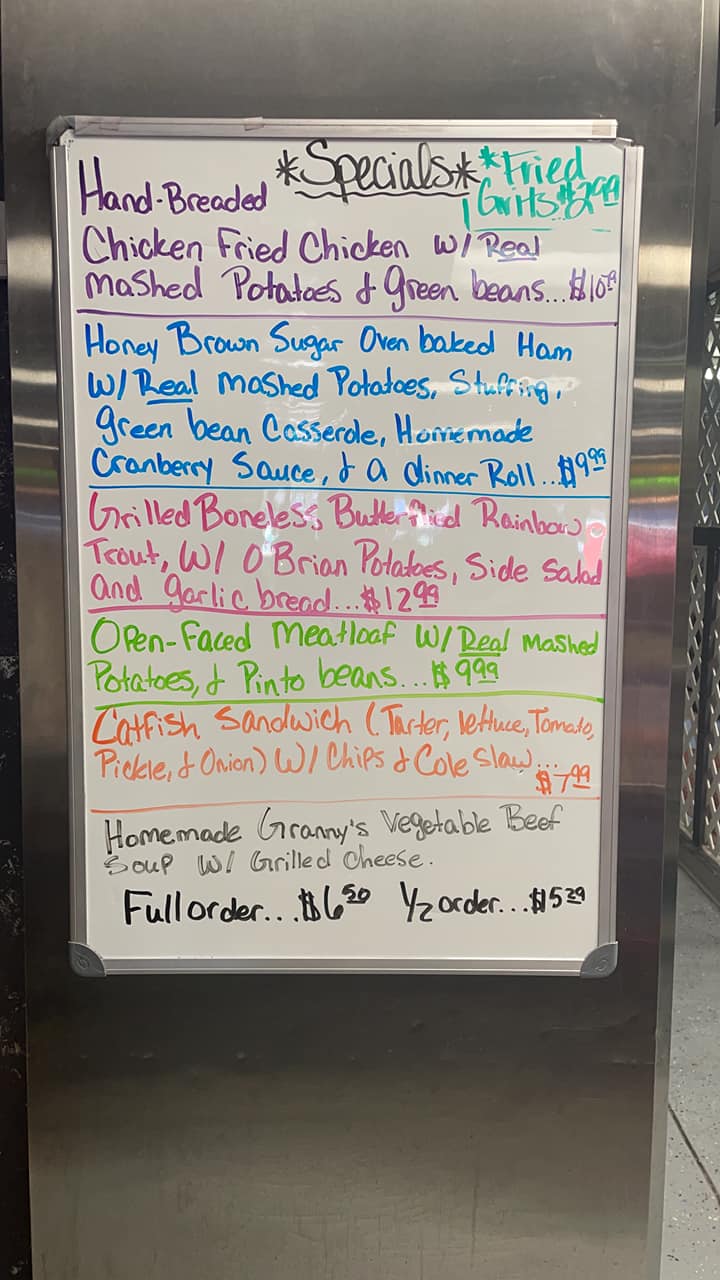 *Specials*
*Fried
Grits $2.99
Hand-Breaded
Chicken Fried Chicken w/ Real
mashed Potatoes & green beans... $10.99
Honey Brown Sugar Oven baked Ham
w/ Real mashed Potatoes, Stuffing,
green bean Casserole, Homemade
Cranberry Sauce, & a dinner Roll... $9.99
Grilled Boneless Butterflied Rainbow
Trout, w/ O'Brian Potatoes, Side Salad
and garlic bread... $12.99
Open-Faced Meatloaf w/ Real Mashed
Potatoes, & Pinto beans... $9.99
Catfish Sandwich (Tarter, lettuce, Tomato,
Pickle, & Onion) w/ Chips & Cole Slaw...
$7.99
Homemade Granny's Vegetable Beef
Soup w/ Grilled Cheese.
Full order... $6.50 1/2 order... $5.29